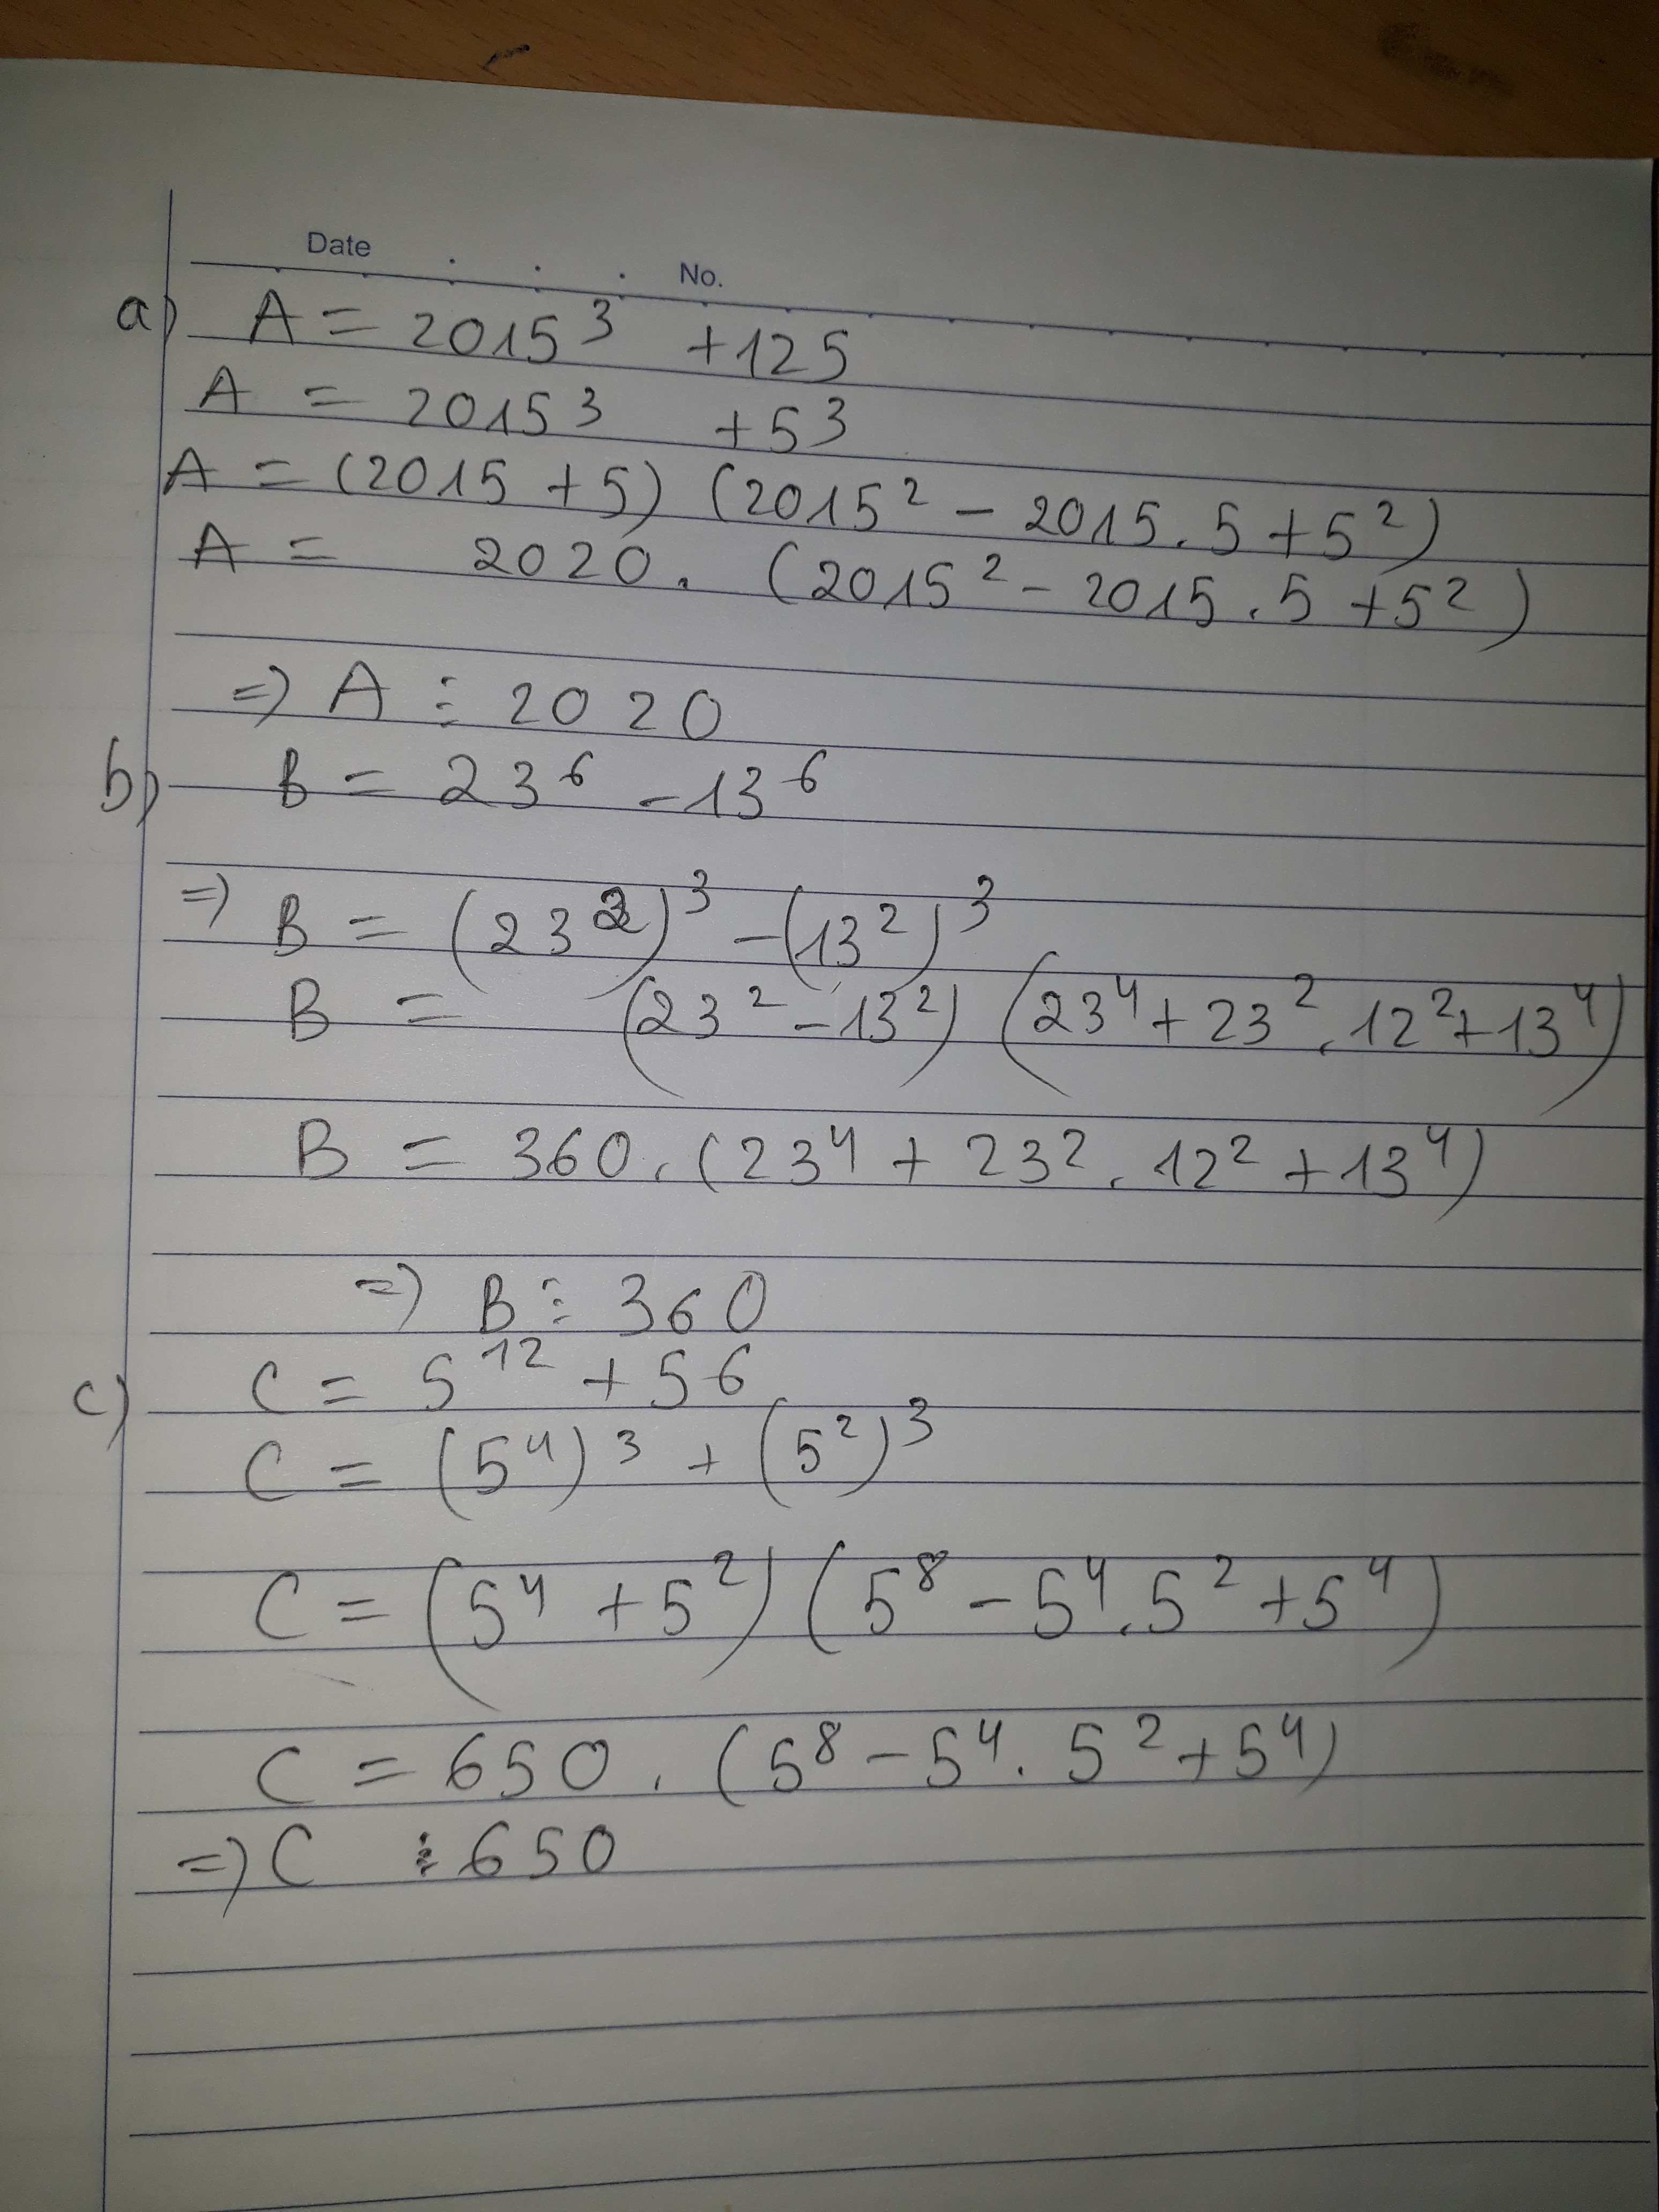 Date . . . No.
a) A = 2015³ + 125
A = 2015³ + 5³
A = (2015 + 5) (2015² - 2015 . 5 + 5²)
A = 2020 . (2015² - 2015 . 5 + 5²)
=> A ⋮ 2020
b) B = 23⁶ - 13⁶
=> B = (23²)³ - (13²)³
B = (23² - 13²) (23⁴ + 23² . 12² + 13⁴)
B = 360 . (23⁴ + 23² . 12² + 13⁴)
=> B ⋮ 360
c) C = 5¹² + 56
C = (5⁴)³ + (5²)³
C = (5⁴ + 5²) (5⁸ - 5⁴ . 5² + 5⁴)
C = 650 . (5⁸ - 5⁴ . 5² + 5⁴)
=> C ⋮ 650